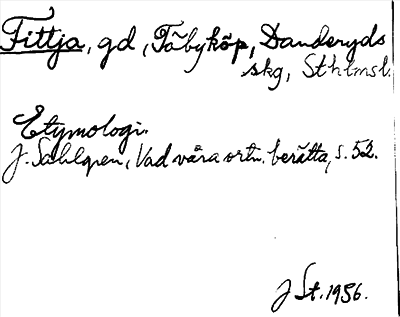 Fittja, gd, Täbyköp, Danderyds
skg, Sthlmsl.
Etymologi.
J. Sahlgren, Vad våra ortn. berätta, s. 52.
J St. 1956.